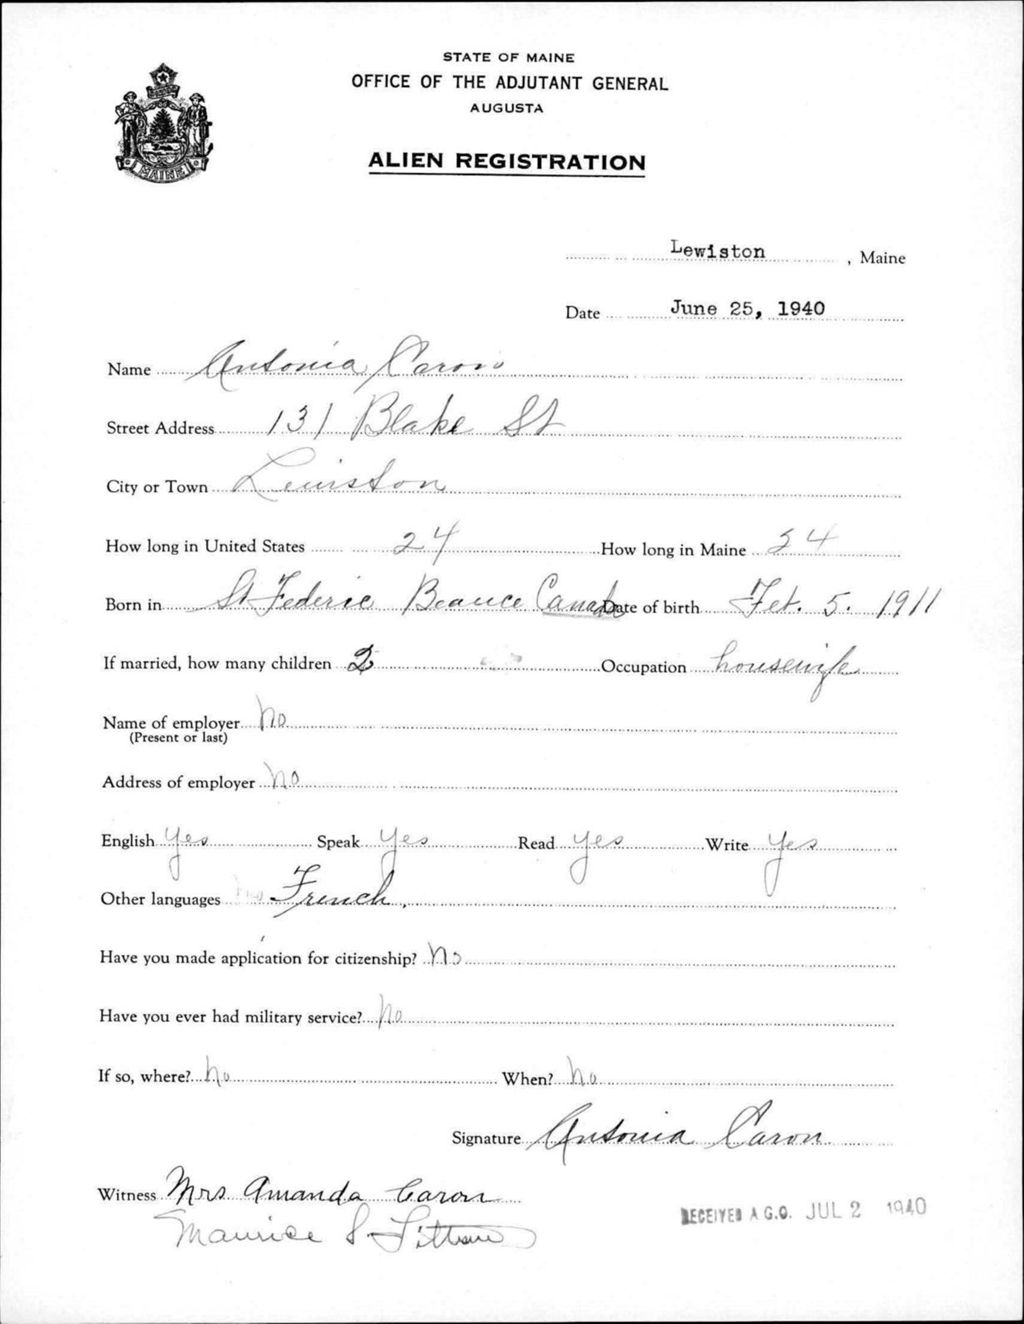 STATE OF MAINE
OFFICE OF THE ADJUTANT GENERAL
AUGUSTA
ALIEN REGISTRATION
MAINE
Lewiston, Maine
Date June 25, 1940
Name Antonia Caron
Street Address 131 Blake St
City or Town Lewiston
How long in United States 24 How long in Maine 24
Born in St Federic Beauce Canada Date of birth Feb. 5. 1911
If married, how many children 2 Occupation housewife
Name of employer no
(Present or last)
Address of employer no
English Yes Speak Yes Read Yes Write Yes
Other languages French,
Have you made application for citizenship? No
Have you ever had military service? No
If so, where? No When? No
Signature Antonia Caron
Witness Mrs Amanda Caron
Maurice L.
RECEIVED A.G.O. JUL 2 1940